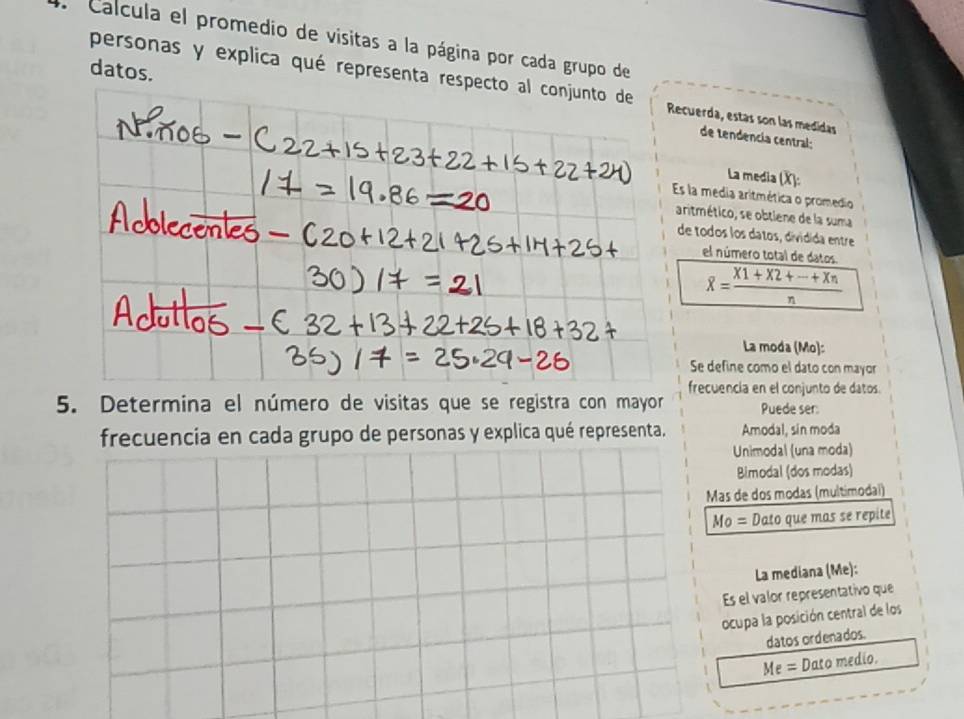 4. Calcula el promedio de visitas a la página por cada grupo de
personas y explica qué representa respecto al conjunto de
datos.
Niños - (22+15+23+22+15+22+20)
/7 = 19.86 = 20
Adolecentes - (20+12+21+25+14+25+
30) /7 = 21
Adultos - (32+13+22+25+18+32+
35) /7 = 25.29 - 25
5. Determina el número de visitas que se registra con mayor
frecuencia en cada grupo de personas y explica qué representa.
Recuerda, estas son las medidas
de tendencia central:
La media (X̄):
Es la media aritmética o promedio
aritmético, se obtiene de la suma
de todos los datos, dividida entre
el número total de datos.
x̄ = (X1 + X2 + ⋯ + Xn) / n
La moda (Mo):
Se define como el dato con mayor
frecuencia en el conjunto de datos.
Puede ser:
Amodal, sin moda
Unimodal (una moda)
Bimodal (dos modas)
Mas de dos modas (multimodal)
Mo = Dato que mas se repite
La mediana (Me):
Es el valor representativo que
ocupa la posición central de los
datos ordenados.
Me = Dato medio.